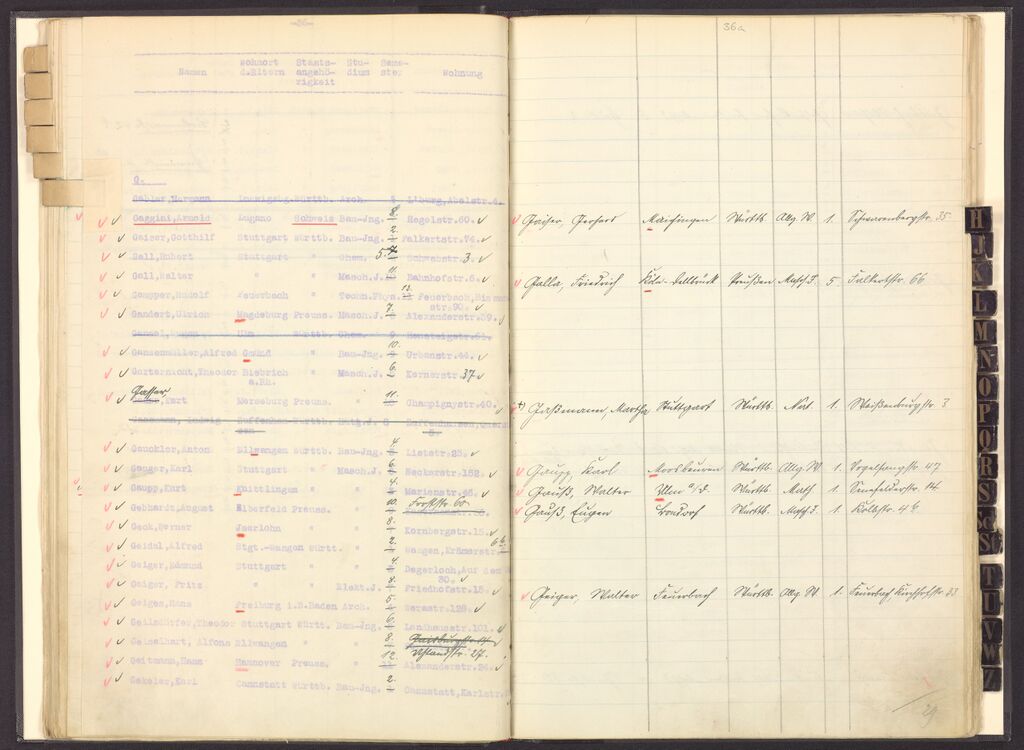 -36-
Namen Wohnort d.Eltern Staats-angehö-rigkeit Stu-dium Seme-ster Wohnung
G.
Gabler,Hermann Ludwigsbg.Württb. Arch.
Gaggini,Arnold Lugano Schweiz Bau-Jng. 8. Hegelstr.60.
Gaiser,Gotthilf Stuttgart Württb. Bau-Jng. 2. Falkertstr.74.
Gall,Hubert Stuttgart " Chem. 5. Schwabstr.3.
Gall,Walter " " Masch.J. 11. Bahnhofstr.6.
Gamper,Rudolf Feuerbach " Techn.Phys. 13. Feuerbach,
str.90.
Gandert,Ulrich Magdeburg Preuss. Masch.J. 7. Alexanderstr.59.
Gansel,Eugen Ulm Württb. Chem. Hensteigstr.51.
Gansenmüller,Alfred Gmünd " Bau-Jng. 10. Urbanstr.44.
Garternicht,Theodor Biebrich a.Rh. " Masch.J. 6. Kernerstr.37
Gasser,
Kurt Merseburg Preuss. " 11. Champignystr.40.
Ludwig Württb.
Gauckler,Anton Ellwangen Württb. Bau-Jng. 4. Liststr.25.
Gauger,Karl Stuttgart " Masch.J. 6. Neckarstr.152.
Gaupp,Kurt Knittlingen " " 4. Marienstr.
Gebhardt,August Elberfeld Preuss. " Forststr 60
Geck,Werner Jserlohn " " 8. Kornbergstr.15.
Geidel,Alfred Stgt.-Wangen Württ. " 2. Wangen,Krämerstr.
Geiger,Edmund Stuttgart " " 4. Degerloch,Auf dem
30.
Geiger,Fritz " " Elekt.J. 8. Friedhofstr.15.
Geiges,Hans Freiburg i.B.Baden Arch. 5. Seestr.128.
Geilsdörfer,Theodor Stuttgart Württb. Bau-Jng. 6. Landhausstr.101.
Geiselhart, Alfons Ellwangen " " 8. Gaisburgstr.
Uhlandstr. 27.
Geitmann,Hans Hannover Preuss. " 12. Alexanderstr.
Gekeler,Karl Cannstatt Württb. Bau-Jng. 2. Cannstatt,Karlstr.
36a
Gaiser, Gerhard Maichingen Württb Allg. W 1. Schwarenbergstr. 35
Galla, Friedrich Köln-Dellbrück Preußen Masch. J. 5 Falkertstr. 66
Gaßmann, Martha Stuttgart Württb. Nat. 1. Weißenburgstr. 3
Gaupp Karl Moosbeuren Württb. Allg. W 1. Vogelsangstr. 47
Gauß, Walter Ulm a/D. Württb. Math 1. Senefelderstr. 14
Gauß, Eugen Bondorf Württb. Masch. J. 1
Geiger, Walter Feuerbach Württb. Allg W 1. Feuerbach,
29
H
J
K
L
M
N
O
P
Q
R
S
Sch
St
T
U
V
W
Z